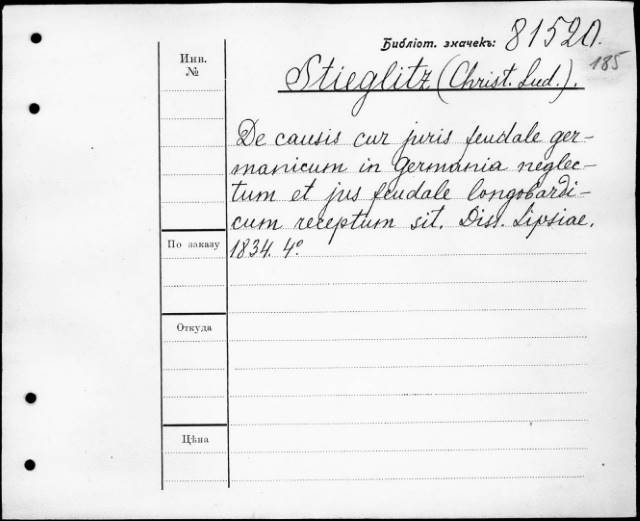 Библіот. значекъ: 81520.
185
Инв.
№
Stieglitz (Christ. Lud.).
De causis cur juris feudale ger-
manicum in Germania neglec-
tum et jus feudale longobardi-
cum receptum sit. Diss. Lipsiae.
1834. 4º.
По заказу
Откуда
Цѣна